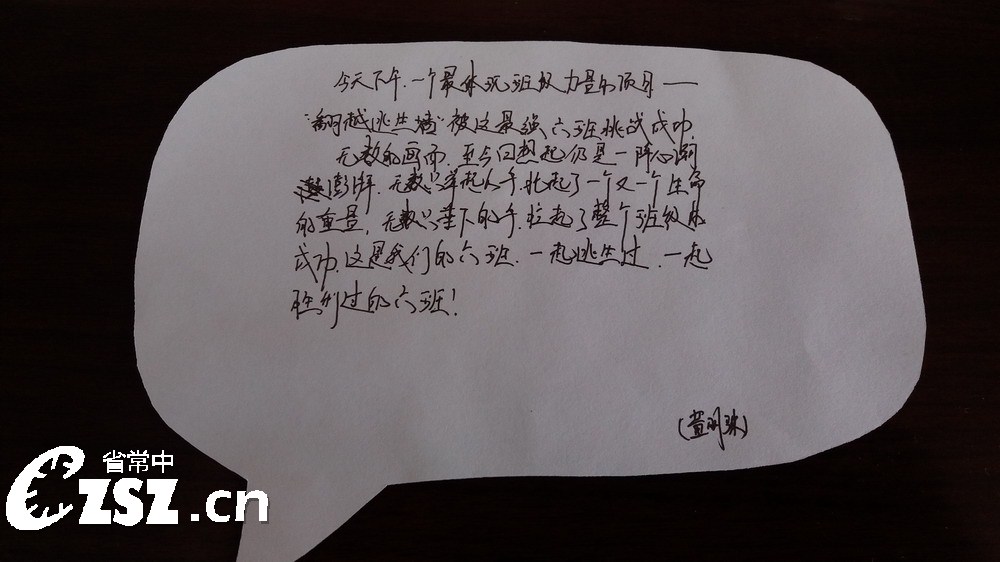 今天下午，一个最体现班级力量的项目——
“翻越逃生墙”被这最强六班挑战成功.
无数的画面，至今回想起仍是一阵心潮
澎湃.无数只举起的手，托起了一个又一个生命
的重量，无数只垂下的手，拉起了整个班级的
成功.这是我们的六班.一起逃生过.一起
胜利过的六班!
明珠
省常中
CZSZ.cn